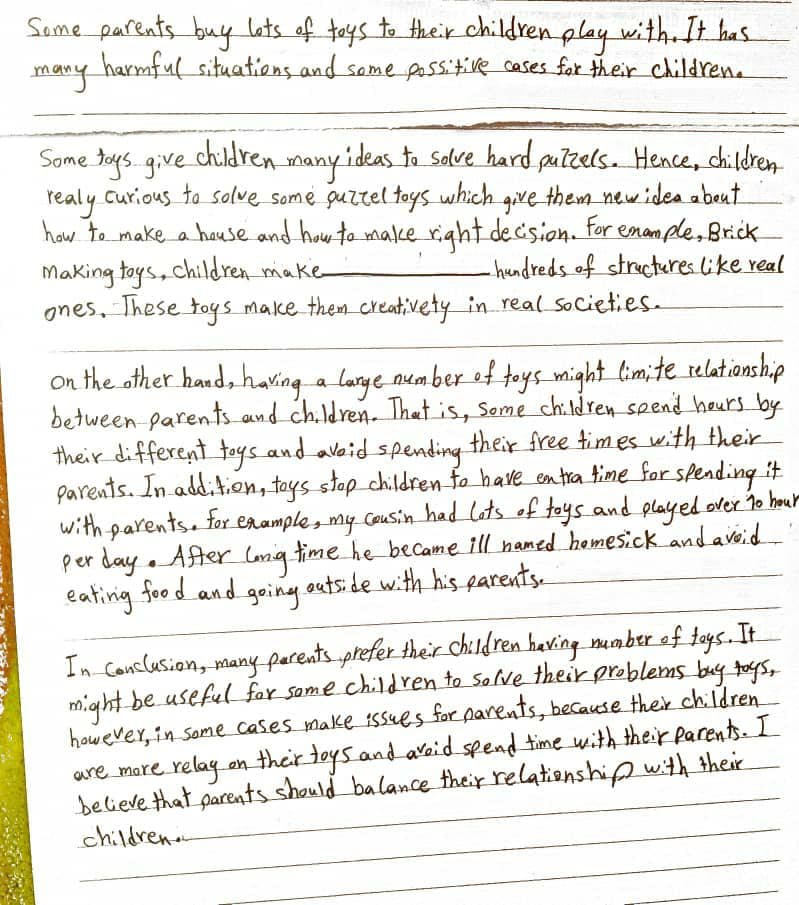 Some parents buy lots of toys to their children play with. It has
many harmful situations and some possitive cases for their children.
Some toys give children many ideas to solve hard puzzels. Hence, children
realy curious to solve some puzzel toys which give them new idea about
how to make a house and how to make right decision. For enample, Brick
Making toys, children make hundreds of structures like real
ones. These toys make them creativety in real societies.
On the other hand, having a large number of toys might limite relationship
between parents and children. That is, some children spend hours by
their different toys and avoid spending their free times with their
parents. In addition, toys stop children to have entra time for spending it
with parents. For enample, my cousin had lots of toys and played over 10 hour
per day. After long time he became ill named homesick and avoid
eating food and going outside with his parents.
In Conclusion, many parents prefer their children having number of toys. It
might be useful for some children to solve their problems buy toys,
however, in some cases make issues for parents, because their children
are more relay on their toys and avoid spend time with their parents. I
believe that parents should balance their relationship with their
children.